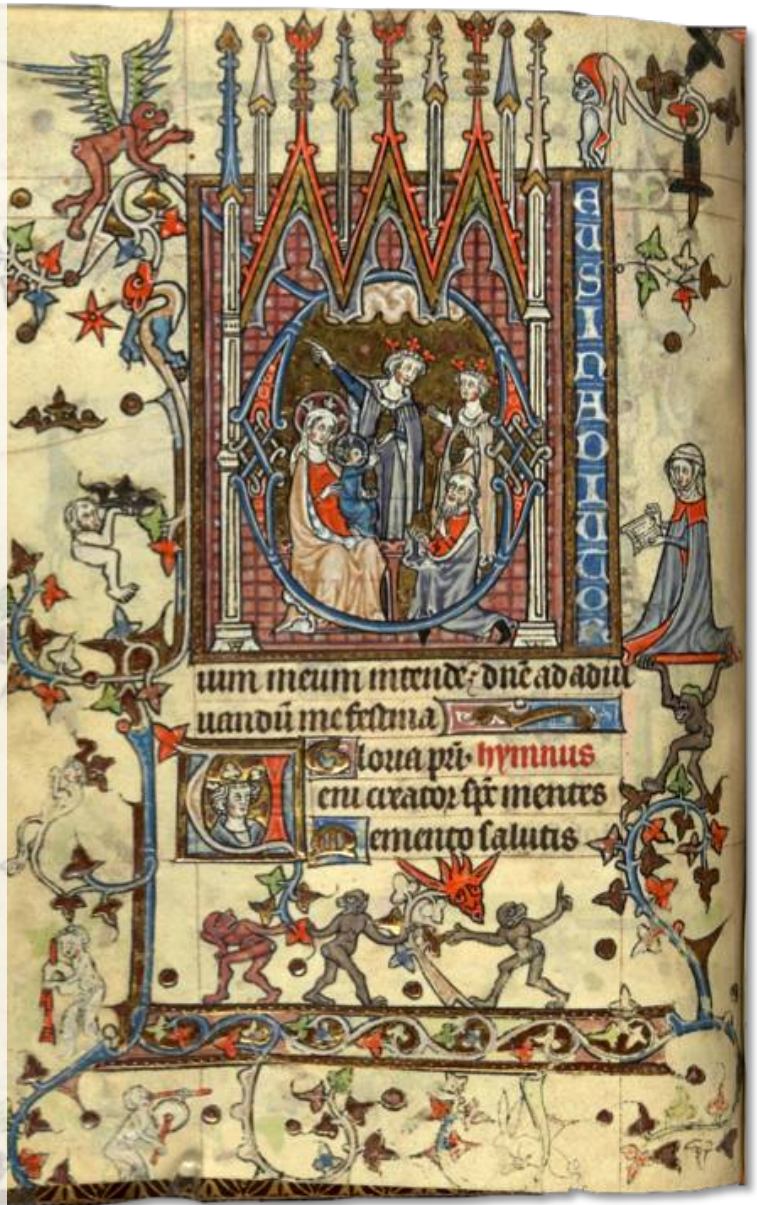 DEUSINADIUTOR
ium meum intende: dñe ad adiu
uandū me festina
Gloria pr̄i· hymnus
Ueni creator sp̄c mentes
Memento salutis